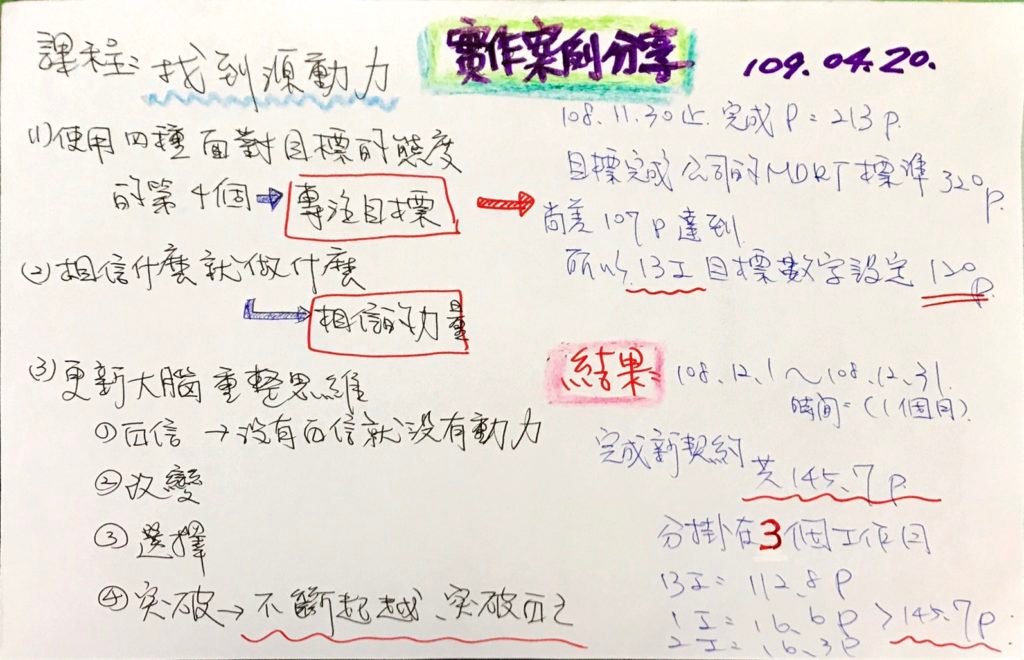 課程:找到源動力
實作案例分享
109.04.20.
(1)使用四種面對目標的態度
的第4個→專注目標
(2)相信什麼就做什麼
相信的力量
(3)更新大腦重整思維
①百信→沒有百信就沒有動力
②改變
③選擇
④突破→不斷超越、突破百己
108.11.30止.完成P=213P.
目標完成公司的MDRT標準320P.
尚差107P達到.
所以13工目標數字設定120P.
結果=
108.12.1～108.12.31.
時間=(1個月).
完成新契約
共145.7P.
分掛在3個工作月
13工=112.8P
1工=16.6P>145.7P.
2工=16.3P